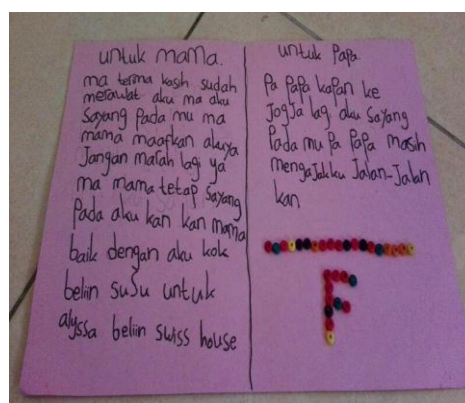 untuk mama.
ma terima kasih sudah
merawat aku ma aku
sayang pada mu ma
mama maafkan akuya
Jangan marah lagi ya
ma mama tetap sayang
pada aku kan kan mama
baik dengan aku kok
beliin susu untuk
alyssa beliin swiss house
untuk Papa
Pa Papa kapan ke
Jogja lagi aku sayang
Pada mu Pa Papa masih
mengajakku Jalan-Jalan
kan
F